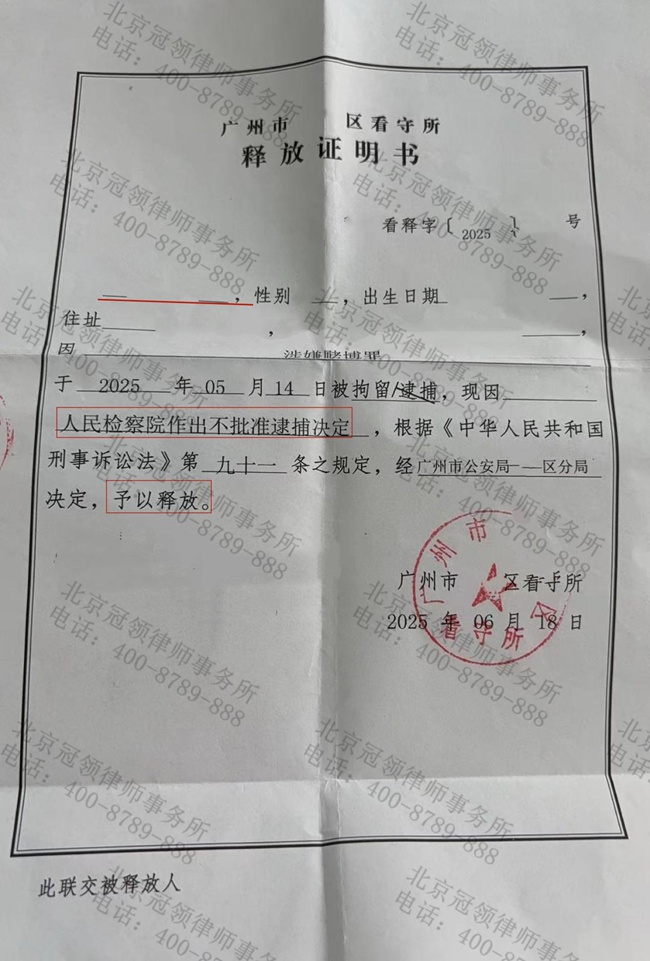 广州市 区看守所
释放证明书
看释字〔2025〕 号
，性别 ，出生日期 ，
住址 ， ，
因 涉嫌赌博罪
于 2025 年 05 月 14 日被拘留/逮捕，现因
人民检察院作出不批准逮捕决定，根据《中华人民共和国
刑事诉讼法》第 九十一 条之规定，经广州市公安局 区分局
决定，予以释放。
广州市 区看守所
2025 年 06 月 18 日
此联交被释放人
北京冠领律师事务所
电话：400-8789-888